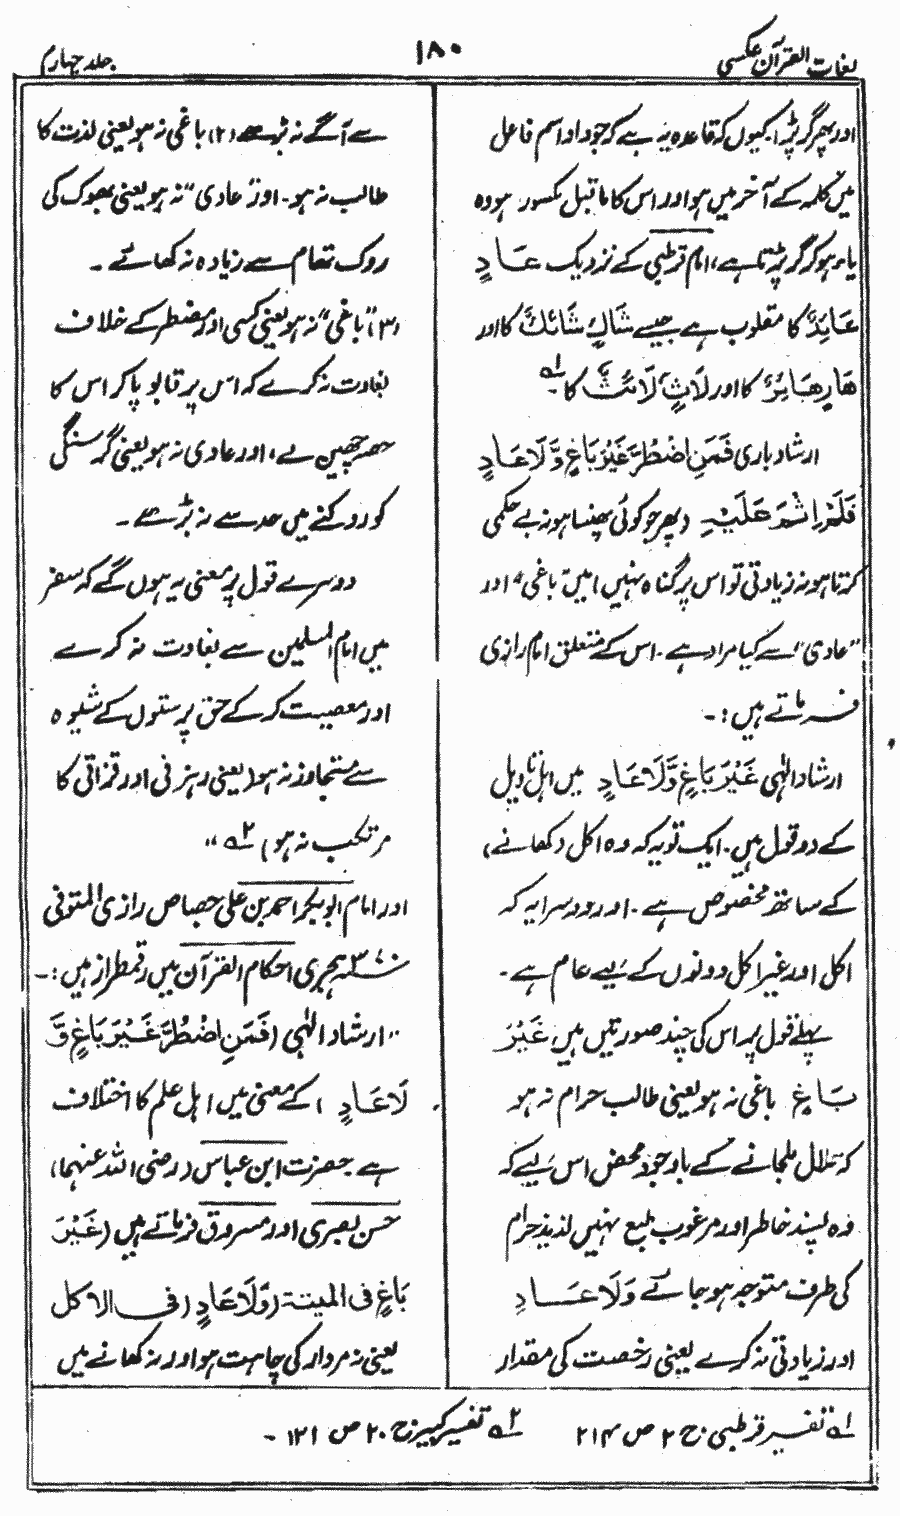 لغات القرآن عکسی
۱۸۰
جلد چہارم
اور پھر گر پڑا۔ کیوں کہ قاعدہ یہ ہے کہ جو واو اسم فاعل
میں کلمہ کے آخر میں ہو اور اس کا ماقبل مکسور ہو وہ
یاء ہو کر گر پڑتا ہے، امام قرطبی کے نزدیک عَادٍ
عَائِدٌ کا مقلوب ہے جیسے شَاكٍ شَائِكٌ کا اور
هَارٍ هَائِرٌ کا اور لَاثٍ لَائِثٌ کا ۱ـه۔
ارشاد باری فَمَنِ اضْطُرَّ غَيْرَ بَاغٍ وَّلَا عَادٍ
فَلَا إِثْمَ عَلَيْهِ (پھر جو کوئی پھنسا ہو نہ بے حکمی
کرتا ہو نہ زیادتی تو اس پر گناہ نہیں) میں "باغی" اور
"عادی" سے کیا مراد ہے۔ اس کے متعلق امام رازی
فرماتے ہیں:۔
ارشاد الٰہی غَيْرَ بَاغٍ وَّلَا عَادٍ میں اہل تاویل
کے دو قول ہیں۔ ایک تو یہ کہ وہ اکل (کھانے)
کے ساتھ مخصوص ہے۔ اور دوسرا یہ کہ
اکل اور غیر اکل دونوں کے لیے عام ہے۔
پہلے قول پر اس کی چند صورتیں ہیں غَيْرَ
بَاغٍ باغی نہ ہو یعنی طالب حرام نہ ہو
کہ حلال مل جانے کے باوجود محض اس لیے کہ
وہ پسند خاطر اور مرغوب طبع نہیں لذیذ حرام
کی طرف متوجہ ہو جائے وَلَا عَادٍ
اور زیادتی نہ کرے یعنی رخصت کی مقدار
سے آگے نہ بڑھے (۲) باغی نہ ہو یعنی لذت کا
طالب نہ ہو۔ اور "عادی" نہ ہو یعنی بھوک کی
روک تھام سے زیادہ نہ کھائے۔
(۳) "باغی" نہ ہو یعنی کسی اور مضطر کے خلاف
بغاوت نہ کرے کہ اس پر قابو پا کر اس کا
حصہ چھین لے، اور عادی نہ ہو یعنی گرسنگی
کو روکنے میں حد سے نہ بڑھے۔
دوسرے قول پر معنی یہ ہوں گے کہ سفر
میں امام المسلمین سے بغاوت نہ کرے
اور معصیت کر کے حق پرستوں کے شیوہ
سے متجاوز نہ ہو (یعنی رہزنی اور قزاقی کا
مرتکب نہ ہو) ۲ـه"
اور امام ابوبکر احمد بن علی جصاص رازی المتوفی
۳۷۰ ہجری احکام القرآن میں رقمطراز ہیں:۔
"ارشاد الٰہی (فَمَنِ اضْطُرَّ غَيْرَ بَاغٍ وَّ
لَا عَادٍ) کے معنی میں اہل علم کا اختلاف
ہے حضرت ابن عباس (رضی اللہ عنہما)
حسن بصری اور مسروق فرماتے ہیں (غَيْرَ
بَاغٍ فی المیتۃ (وَّلَا عَادٍ) فی الاکل
یعنی نہ مردار کی چاہت ہو اور نہ کھانے میں
۱ـه تفسیر قرطبی۔ ج ۲ ص ۲۱۴
۲ـه تفسیر کبیر ج ۲۰ ص ۱۲۱۔